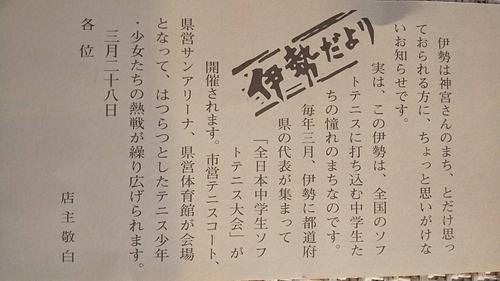 伊勢だより
伊勢は神宮さんのまち、とだけ思っ
ておられる方に、ちょっと思いがけな
いお知らせです。
実は、この伊勢は、全国のソフ
トテニスに打ち込む中学生た
ちの憧れのまちなのです。
毎年三月、伊勢に都道府
県の代表が集まって
「全日本中学生ソフ
トテニス大会」が
開催されます。市営テニスコート、
県営サンアリーナ、県営体育館が会場
となって、はつらつとしたテニス少年
・少女たちの熱戦が繰り広げられます。
三月二十八日
店主敬白
各位